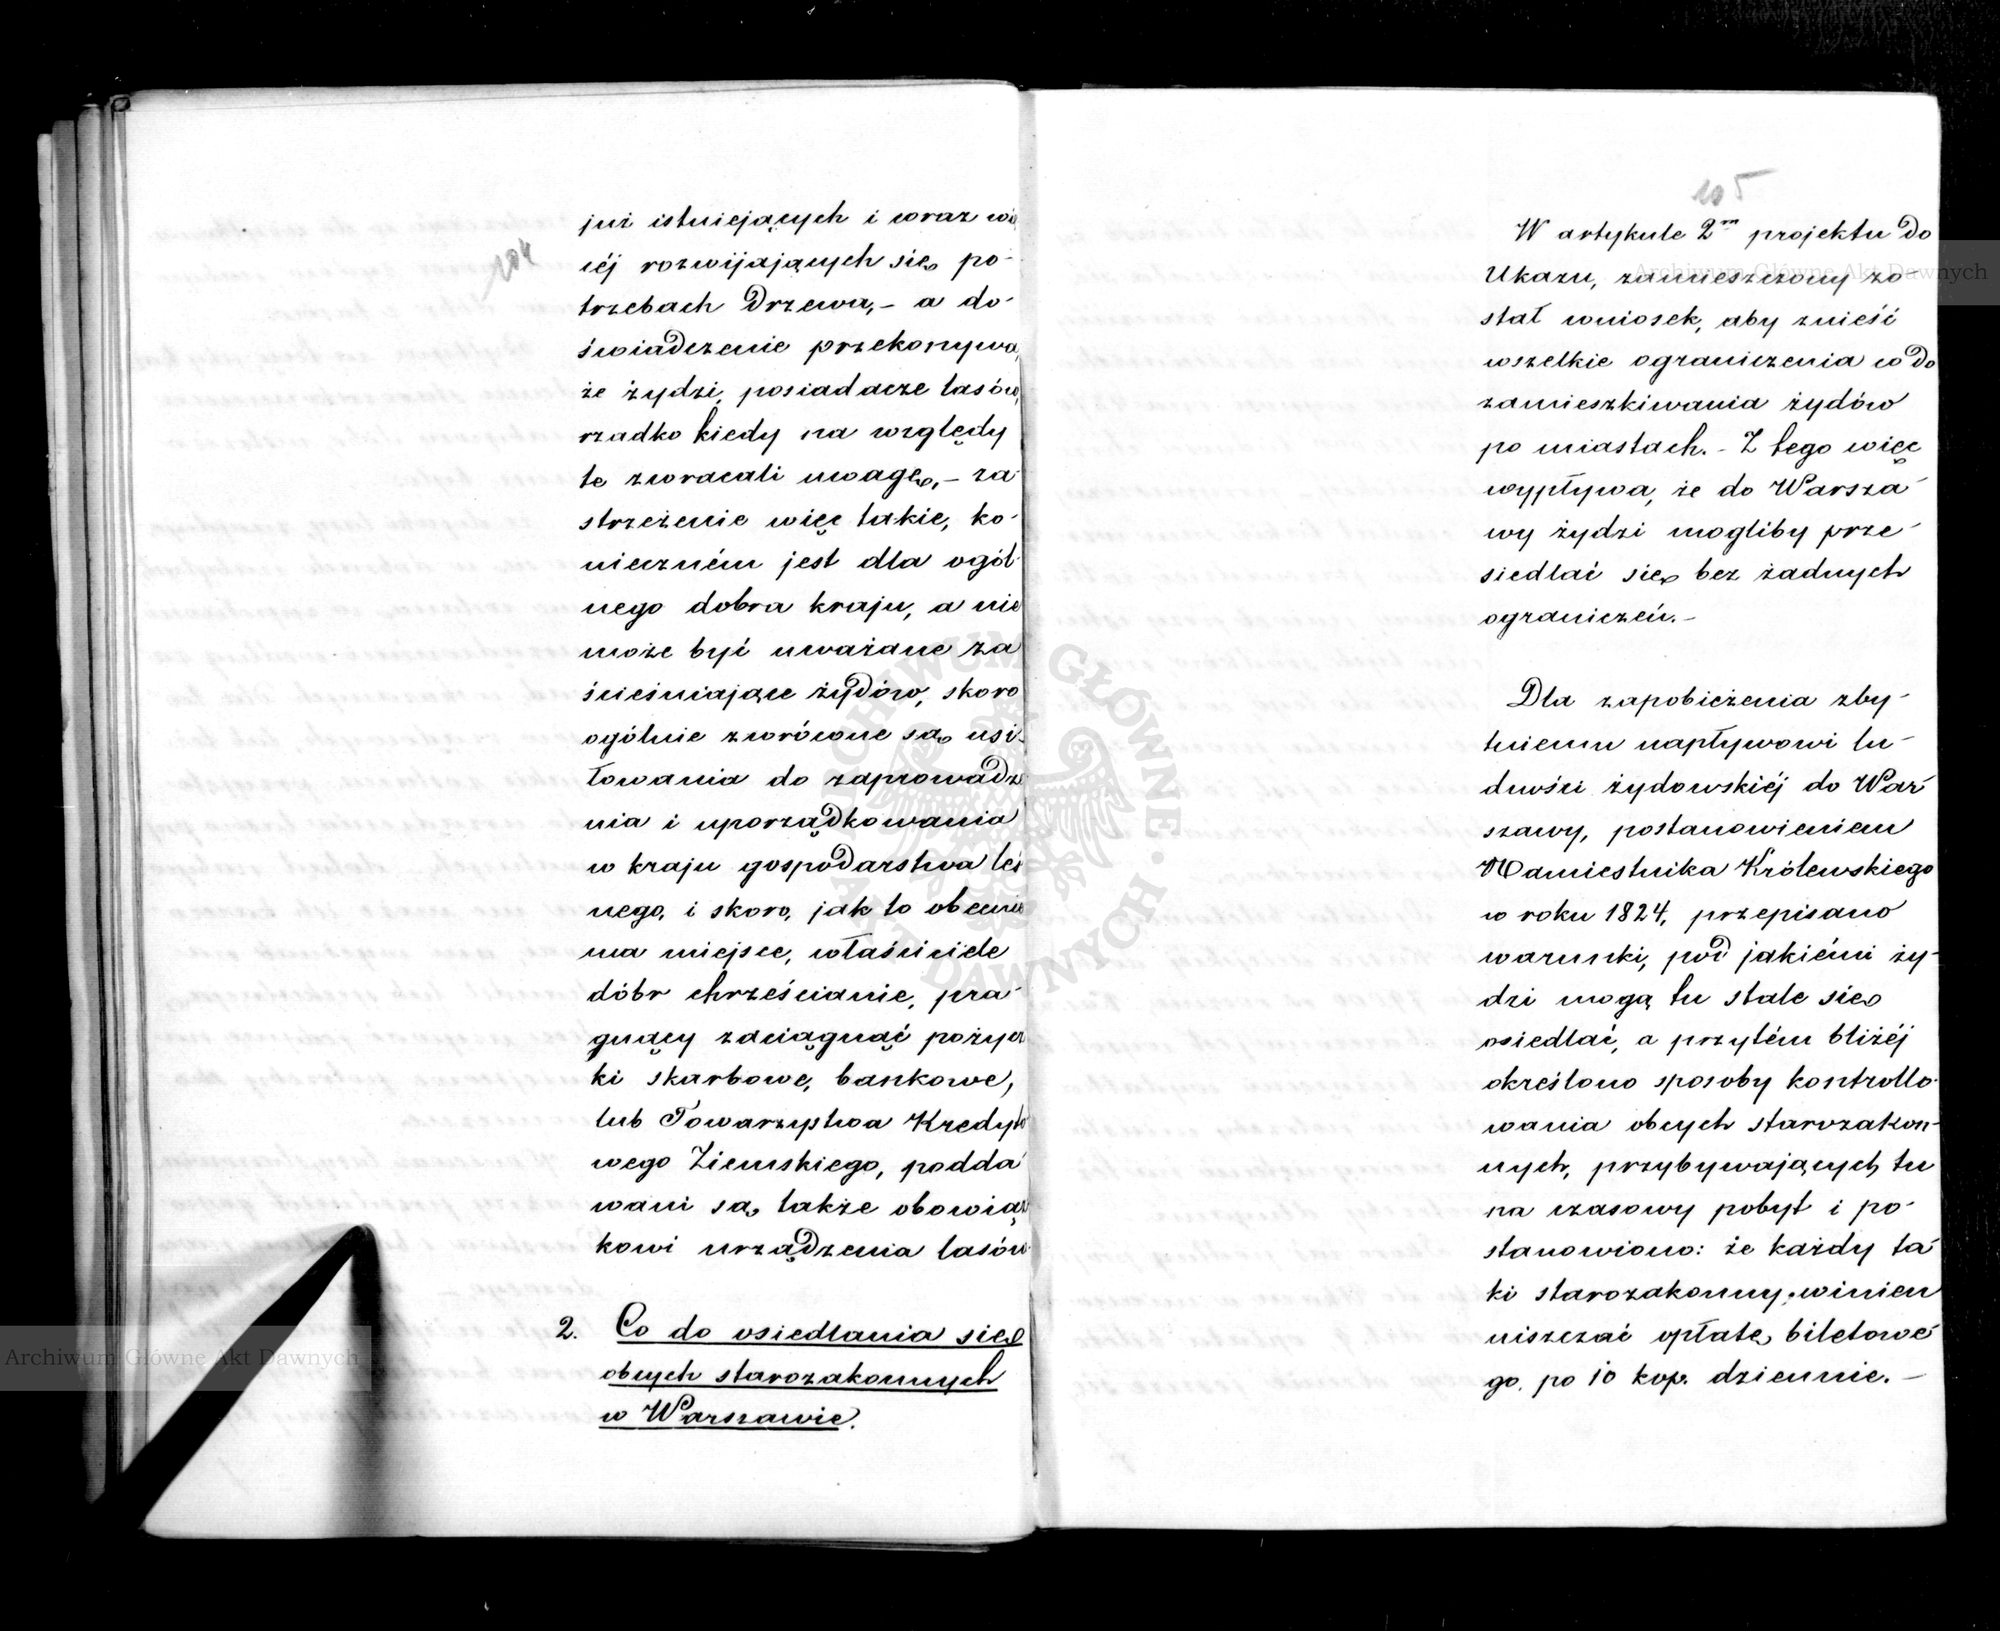 204
już istniejących i wraz wię
céj rozwijających się po-
trzebach drzewa,- a do-
świadczenie przekonywa,
że żydzi, posiadacze lasów,
rzadko kiedy na względy
te zwracali uwagę,- za-
strzeżenie więc takie, ko-
nieczném jest dla ogól-
nego dobra kraju, a nie
może być uważane za
ścieśniające żydów, skoro
ogólnie zwrócone są usi-
łowania do zaprowadze
nia i uporządkowania
w kraju gospodarstwa leś
nego, i skoro, jak to obecnie
ma miejsce, właściciele
dóbr chrześcianie, pra-
gnący zaciągnąć pożycz
ki skarbowe, bankowe,
lub Towarzystwa Kredyto
wego Ziemskiego, podda-
wani są także obowiąz
kowi urządzenia lasów
2. Co do osiedlania się
obcych starozakonnych
w Warszawie.
205
W artykule 2m projektu do
Ukazu, zamieszczony zo-
stał wniosek, aby znieść
wszelkie ograniczenia w do
zamieszkiwania żydów
po miastach.- Z tego więc
wypływa, że do Warsza-
wy żydzi mogliby prze-
siedlać się bez żadnych
ograniczeń.-
Dla zapobieżenia zby-
tniemu napływowi lu-
dności żydowskiéj do War-
szawy, postanowieniem
Namiestnika Królewskiego
w roku 1824, przepisano
warunki, pod jakiémi ży-
dzi mogą tu stale się
osiedlać, a przytém bliżéj
określono sposoby kontrollo-
wania obcych starozakon-
nych, przybywających tu
na czasowy pobyt i po-
stanowiono: że każdy ta-
ki starozakonny, winien
uiszczać opłatę biletowe-
go. po 10 kop. dziennie.-
Archiwum Główne Akt Dawnych
Archiwum Główne Akt Dawnych
ARCHIWUM GŁÓWNE AKT DAWNYCH